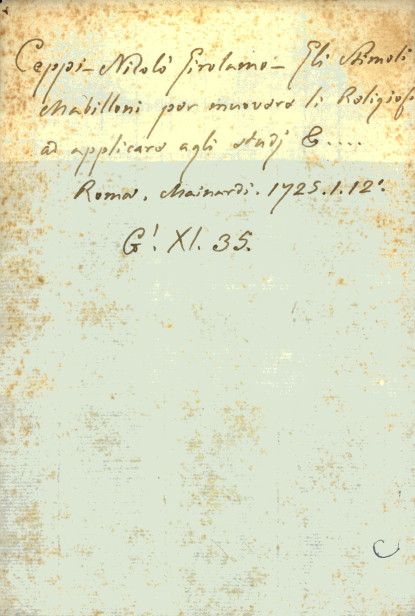 Ceppi - Nicolò Girolamo - Gli Stimoli
Mabilloni per muovere li Religiosi
ad applicare agli studj &....
Roma. Mainardi. 1725. 1. 12°.
G! XI. 35.